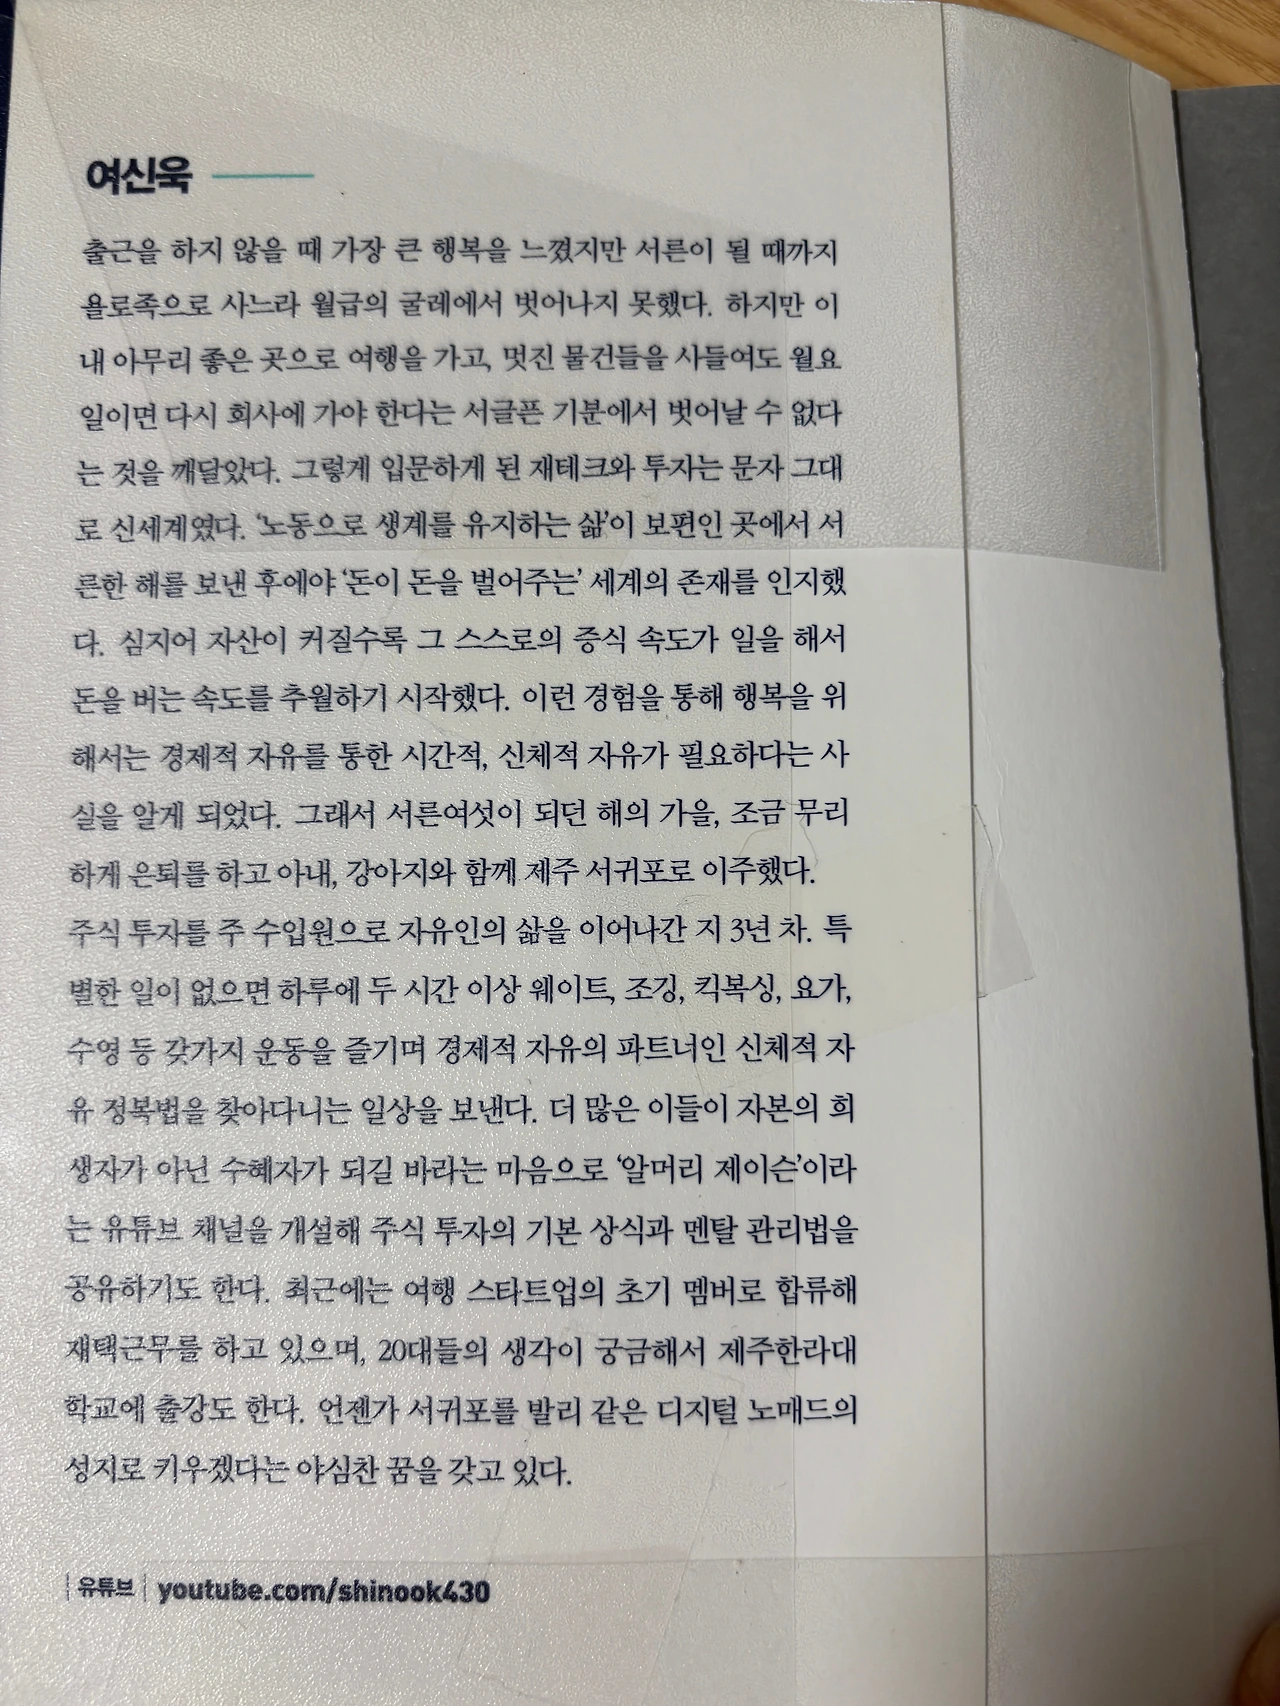 여신욱
출근을 하지 않을 때 가장 큰 행복을 느꼈지만 서른이 될 때까지
욜로족으로 사느라 월급의 굴레에서 벗어나지 못했다. 하지만 이
내 아무리 좋은 곳으로 여행을 가고, 멋진 물건들을 사들여도 월요
일이면 다시 회사에 가야 한다는 서글픈 기분에서 벗어날 수 없다
는 것을 깨달았다. 그렇게 입문하게 된 재테크와 투자는 문자 그대
로 신세계였다. ‘노동으로 생계를 유지하는 삶’이 보편인 곳에서 서
른한 해를 보낸 후에야 ‘돈이 돈을 벌어주는’ 세계의 존재를 인지했
다. 심지어 자산이 커질수록 그 스스로의 증식 속도가 일을 해서
돈을 버는 속도를 추월하기 시작했다. 이런 경험을 통해 행복을 위
해서는 경제적 자유를 통한 시간적, 신체적 자유가 필요하다는 사
실을 알게 되었다. 그래서 서른여섯이 되던 해의 가을, 조금 무리
하게 은퇴를 하고 아내, 강아지와 함께 제주 서귀포로 이주했다.
주식 투자를 주 수입원으로 자유인의 삶을 이어나간 지 3년 차. 특
별한 일이 없으면 하루에 두 시간 이상 웨이트, 조깅, 킥복싱, 요가,
수영 등 갖가지 운동을 즐기며 경제적 자유의 파트너인 신체적 자
유 정복법을 찾아다니는 일상을 보낸다. 더 많은 이들이 자본의 희
생자가 아닌 수혜자가 되길 바라는 마음으로 ‘알머리 제이슨’이라
는 유튜브 채널을 개설해 주식 투자의 기본 상식과 멘탈 관리법을
공유하기도 한다. 최근에는 여행 스타트업의 초기 멤버로 합류해
재택근무를 하고 있으며, 20대들의 생각이 궁금해서 제주한라대
학교에 출강도 한다. 언젠가 서귀포를 발리 같은 디지털 노매드의
성지로 키우겠다는 야심찬 꿈을 갖고 있다.
| 유튜브 | youtube.com/shinook430